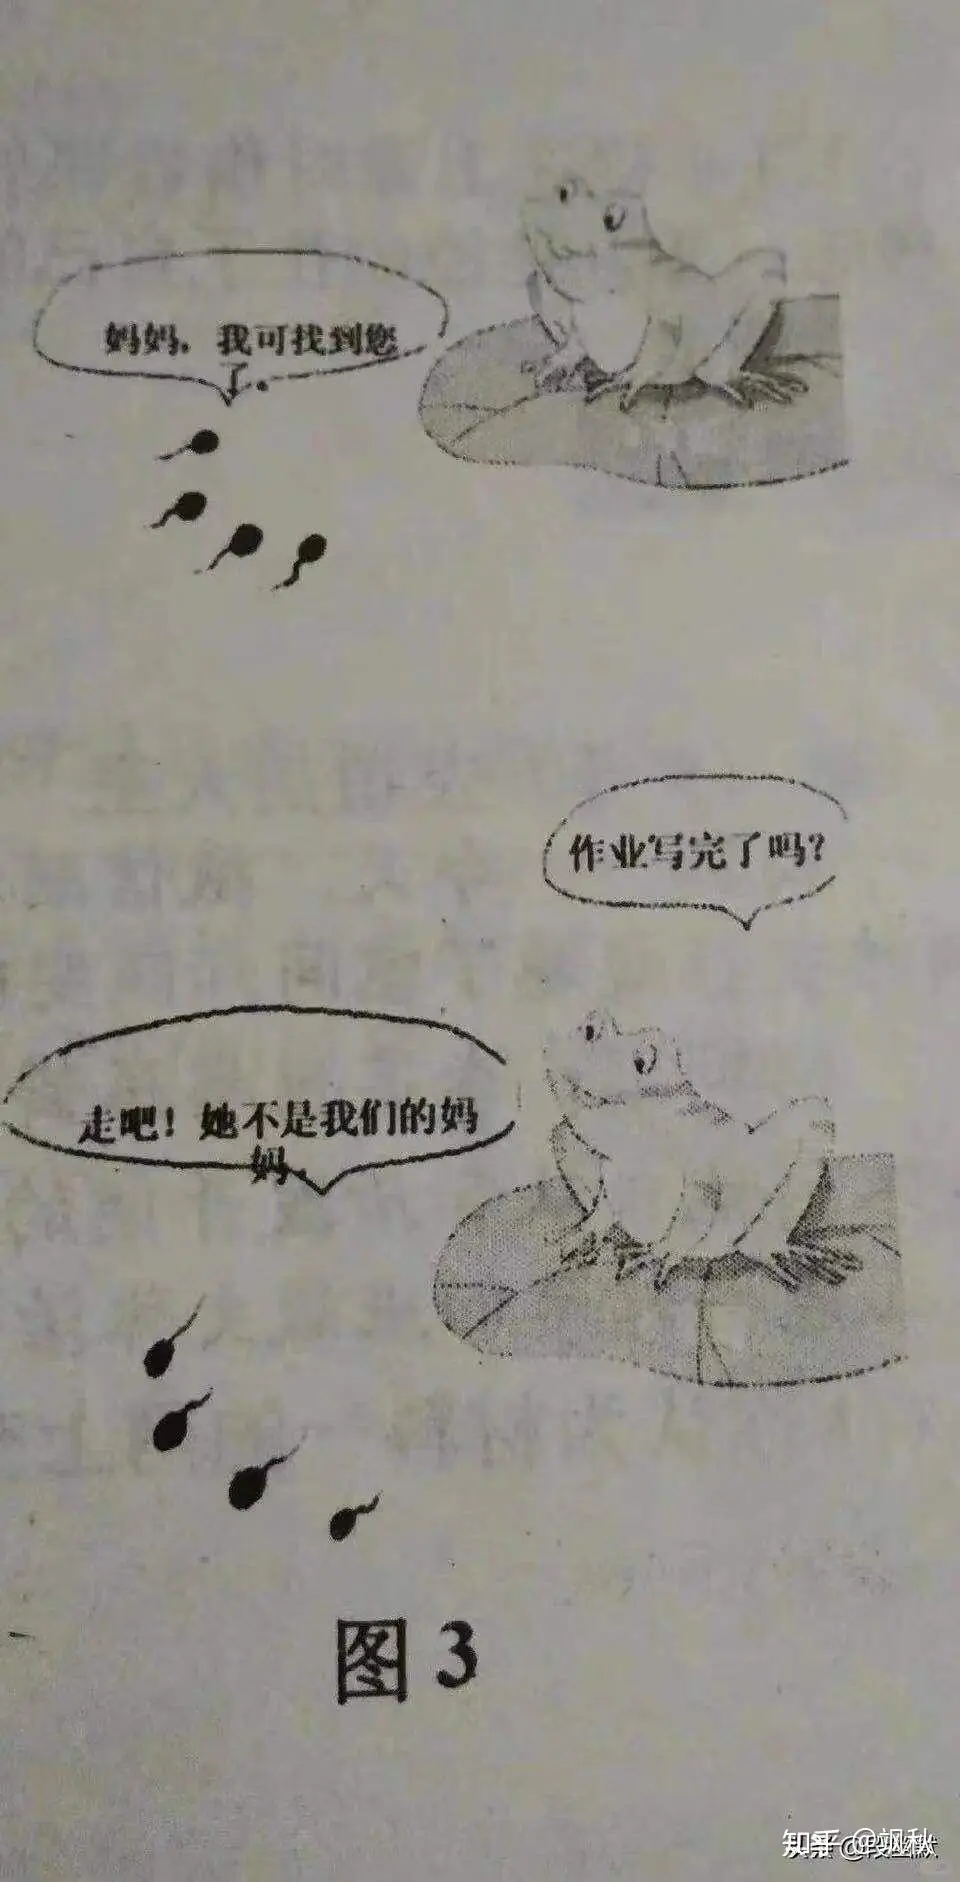 妈妈，我可找到您
了。
作业写完了吗？
走吧！她不是我们的妈
妈。
图 3
知乎 @飒秋